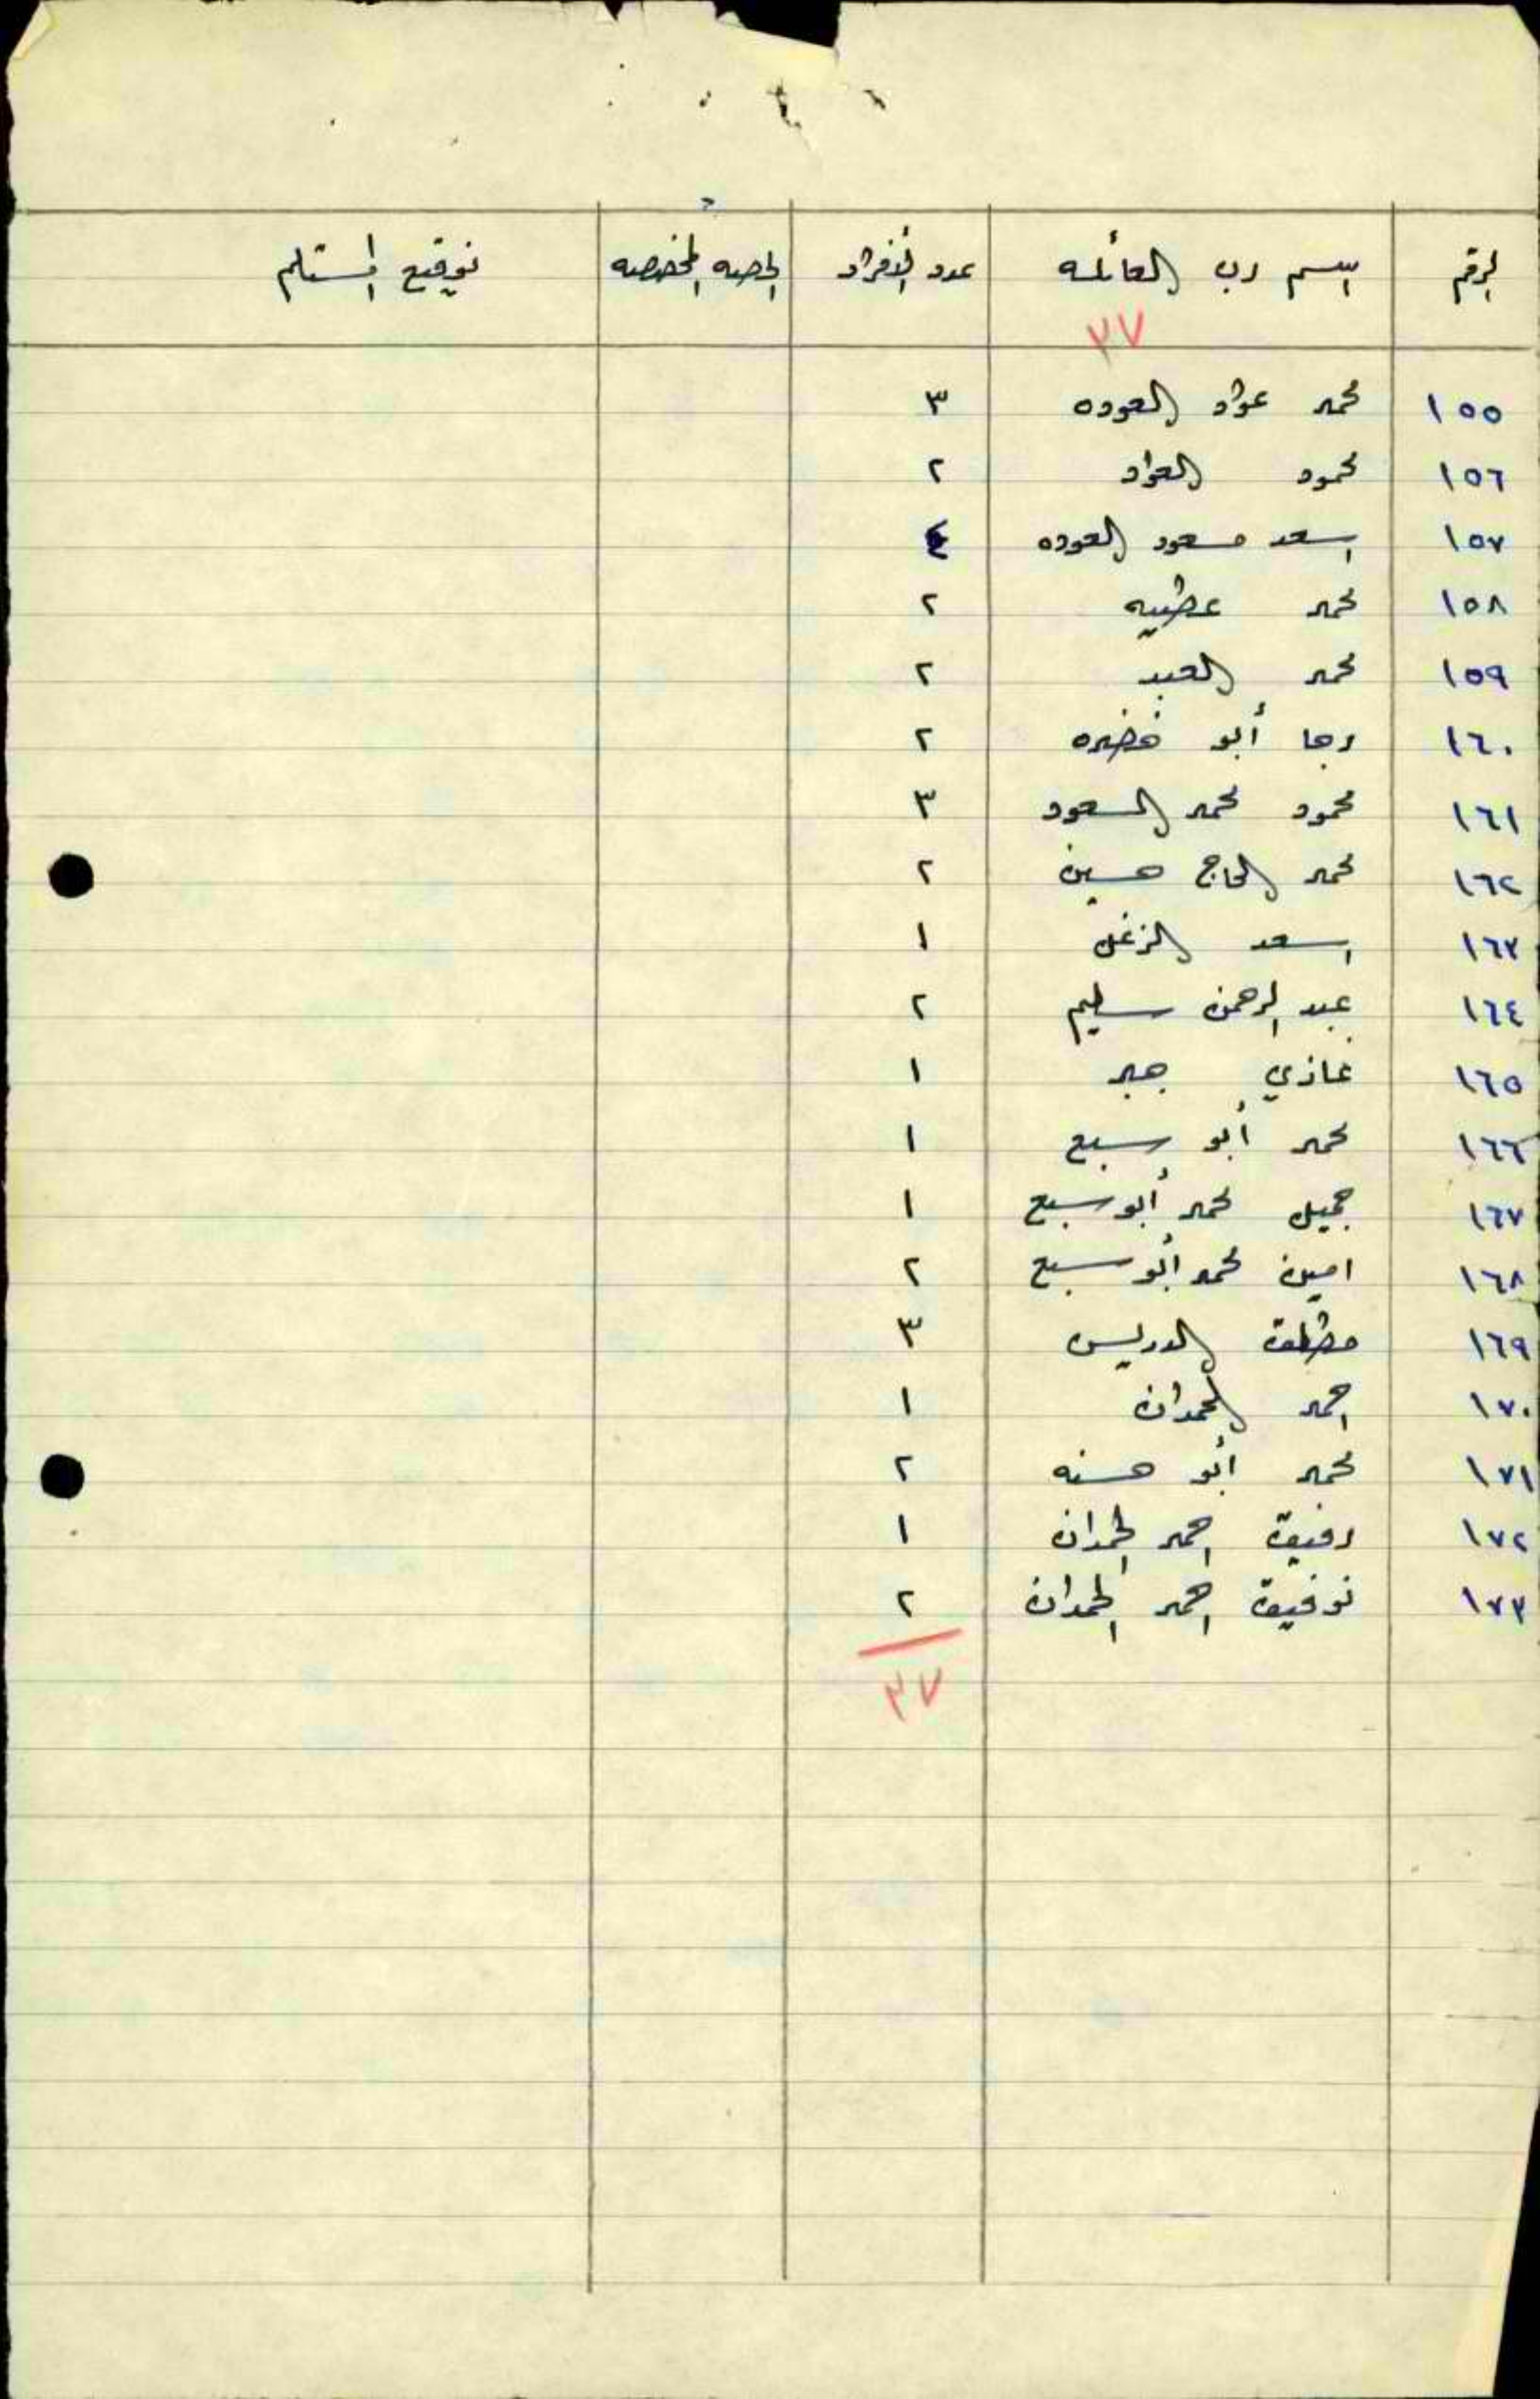 الرقم اسم رب العائله عدد الأفراد الحصه المخصصه توقيع المستلم
٣٧
١٥٥ محمد عواد العوده ٣
١٥٦ محمود العواد ٢
١٥٧ اسعد مسعود العوده ٤
١٥٨ محمد عطيه ٢
١٥٩ محمد العبد ٢
١٦٠ رجا أبو خضره ٢
١٦١ محمود محمد السعود ٣
١٦٢ محمد الحاج حسين ٢
١٦٣ اسعد الزغل ١
١٦٤ عبد الرحمن سليم ٢
١٦٥ غازي جبر ١
١٦٦ محمد أبو سبع ١
١٦٧ جميل محمد أبو سبع ١
١٦٨ امين محمد أبو سبع ٢
١٦٩ مطلق الدريس ٣
١٧٠ احمد الحمدان ١
١٧١ محمد أبو حسنه ٢
١٧٢ رفيق احمد الحمدان ١
١٧٣ توفيق احمد الحمدان ٢
٣٧